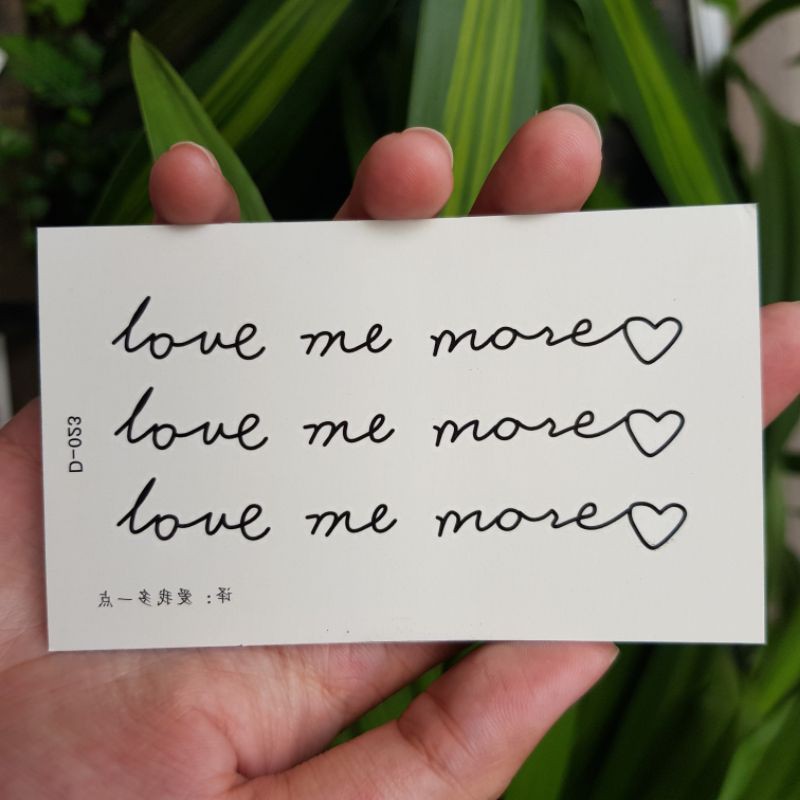 love me more♡
love me more♡
love me more♡
D-053
译：爱我多一点